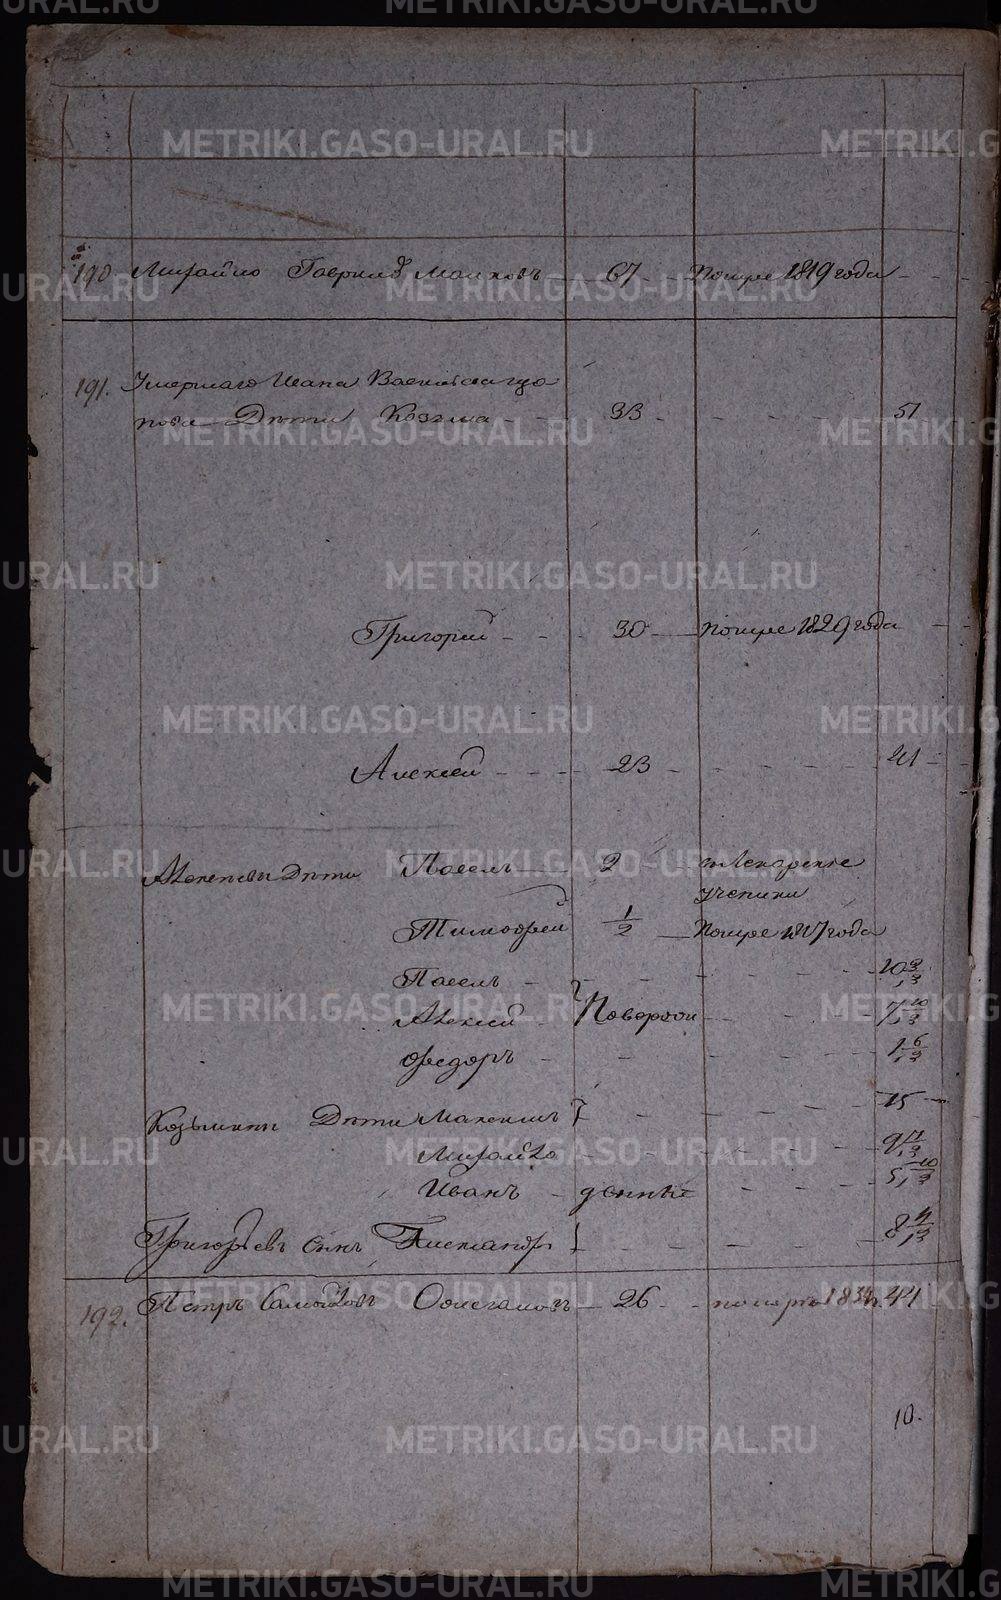 190 Михайло Гаврилов Маиковъ 67 Помре 1819 года
191. Умершаго Ивана Васильева
Дѣти Козма 33 51
Григорей 30 Помре 1829 года
Алексей 23 41
Алексеевы Дѣти Павелъ 2 в лекарские
ученики
Тимофей 1/2 Помре 1817 года
Павелъ 10
Алексей Поверской 7
Федоръ 1
Козьмины Дѣти Максимъ 15
Михайло 9
Иванъ 5
Григорьевъ Сынъ Александръ 8
192. Петръ Самойловъ Ожегановъ 26 померъ 44
10.
METRIKI.GASO-URAL.RU